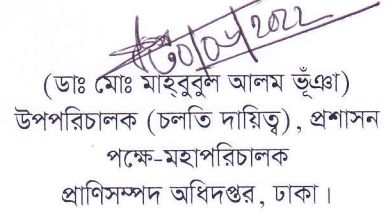 (ডাঃ মোঃ মাহ্বুবুল আলম ভূঁঞা)
উপপরিচালক (চলতি দায়িত্ব), প্রশাসন
পক্ষে-মহাপরিচালক
প্রাণিসম্পদ অধিদপ্তর, ঢাকা।